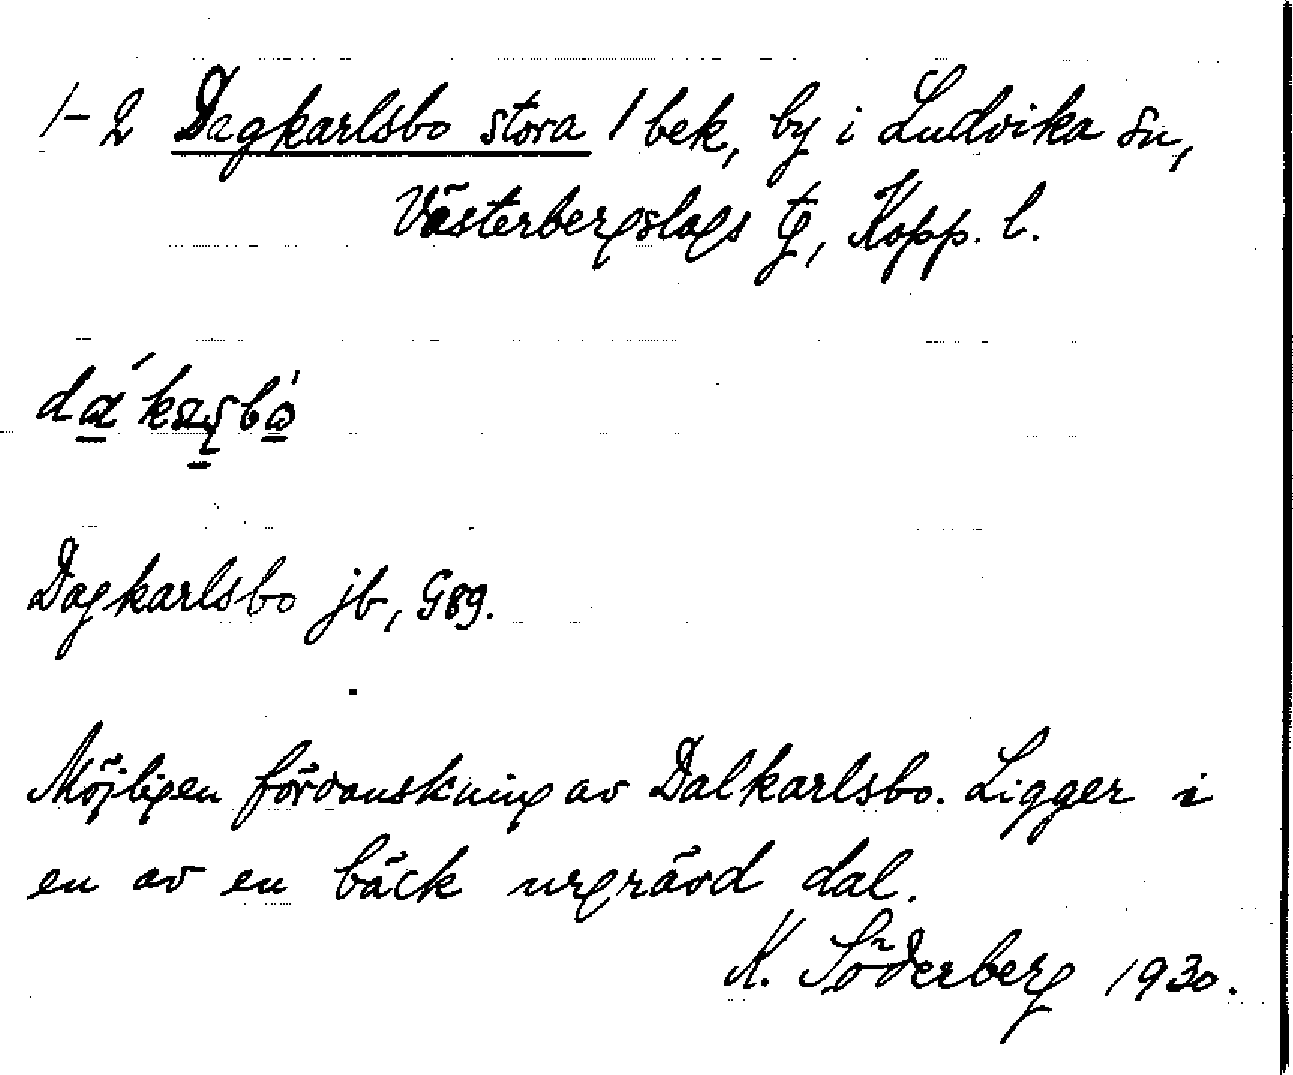 1-2 Dagkarlsbo stora / bek, by i Ludvika sn,
Västerbergslags tg, Kopp. l.
Dagkarlsbo jb, G89.
Möjligen förvanskning av Dalkarlsbo. Ligger i
en av en bäck urgrävd dal.
K. Söderberg 1930.